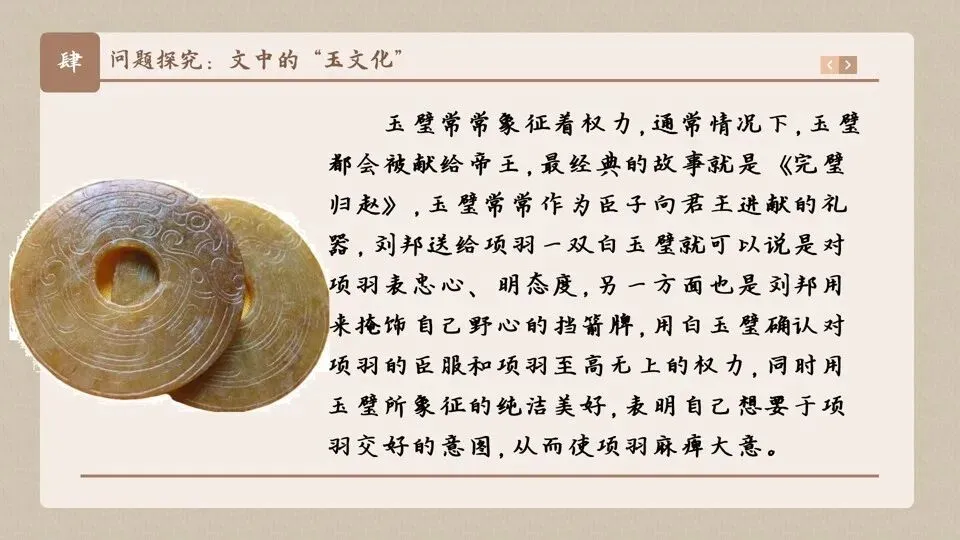 肆
问题探究：文中的“玉文化”
玉璧常常象征着权力，通常情况下，玉璧
都会被献给帝王，最经典的故事就是《完璧
归赵》，玉璧常常作为臣子向君王进献的礼
器，刘邦送给项羽一双白玉璧就可以说是对
项羽表忠心、明态度，另一方面也是刘邦用
来掩饰自己野心的挡箭牌，用白玉璧确认对
项羽的臣服和项羽至高无上的权力，同时用
玉璧所象征的纯洁美好，表明自己想要于项
羽交好的意图，从而使项羽麻痹大意。